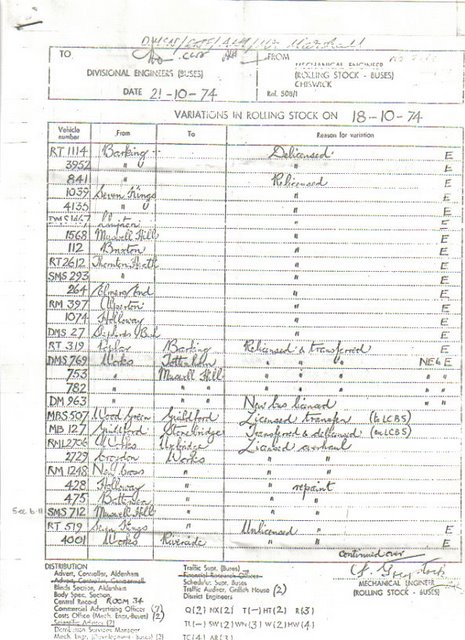 TO FROM MECHANICAL ENGINEER
DIVISIONAL ENGINEERS (BUSES) (ROLLING STOCK - BUSES)
CHISWICK
DATE 21-10-74 Ref. 508/1
VARIATIONS IN ROLLING STOCK ON 18-10-74
Vehicle number From To Reason for variation
RT 1114 Barking " Delicensed E
3952 " U " E
841 " Relicensed E
1039 Seven Kings " E
4135 " U " E
DMS 1467 " E
1568 Muswell Hill " E
112 Brixton " E
RT 2612 Thornton Heath " E
SMS 293 " " E
264 Elmers End " E
RM 397 Alperton " E
1074 Holloway " E
DMS 27 Shepherds Bush " E
RT 319 Poplar Barking Relicensed & transferred E
DMS 769 Works Tottenham " " " NE & E
753 " Muswell Hill " " " " "
782 " " " " " " "
DM 963 " " New bus licensed " "
MBS 507 Wood Green Guildford Licensed transfer (to LCBS)
MB 127 Guildford Stonebridge Transferred & delicensed (ex LCBS)
RML 2706 Works Uxbridge Licensed overhaul
2729 Croydon Works " "
RM 1248 New Cross " " "
428 Holloway " " repaint
475 Battersea " " "
SMS 712 Muswell Hill " " "
RT 519 Seven Kings " Unlicensed " E
4001 Works Riverside " " E
continued over
MECHANICAL ENGINEER
(ROLLING STOCK - BUSES)
DISTRIBUTION
Advert. Controller, Aldenham
Blinds Section, Aldenham
Body Spec. Section
Central Record ROOM 34
Commercial Advertising Officer (7)
Costs Office (Mech. Eng.-Buses) (2)
Scientific Adviser (2)
Development Services Manager
Mech. Engr. (Development-Buses) (2)
Traffic Supt. (Buses)
Financial Research Officer
Schedules Supt. (Buses)
Traffic Auditor, Griffith House (2)
District Engineers
Q(2) NX(2) T(-) HT(2) R(3)